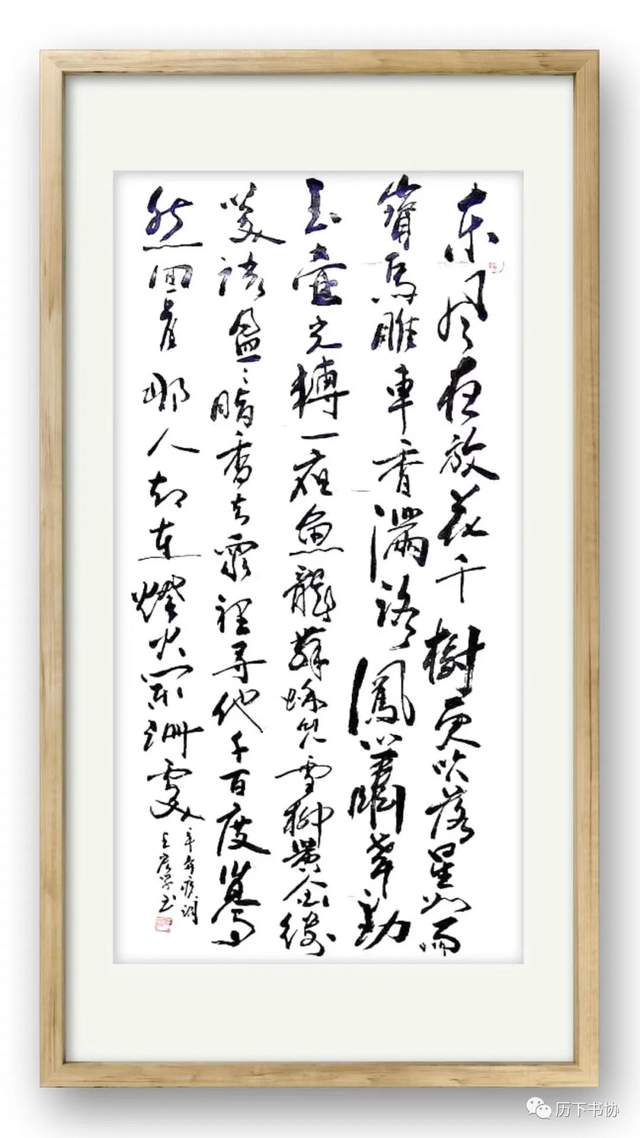 东风夜放花千樹更吹落星如雨
寶馬雕車香滿路鳳簫聲動
玉壺光轉一夜魚龍舞蛾兒雪柳黃金縷
笑語盈〻暗香去眾裡尋他千百度驀
然回首那人却在燈火闌珊處
辛弃疾詞
王 书
历下书协